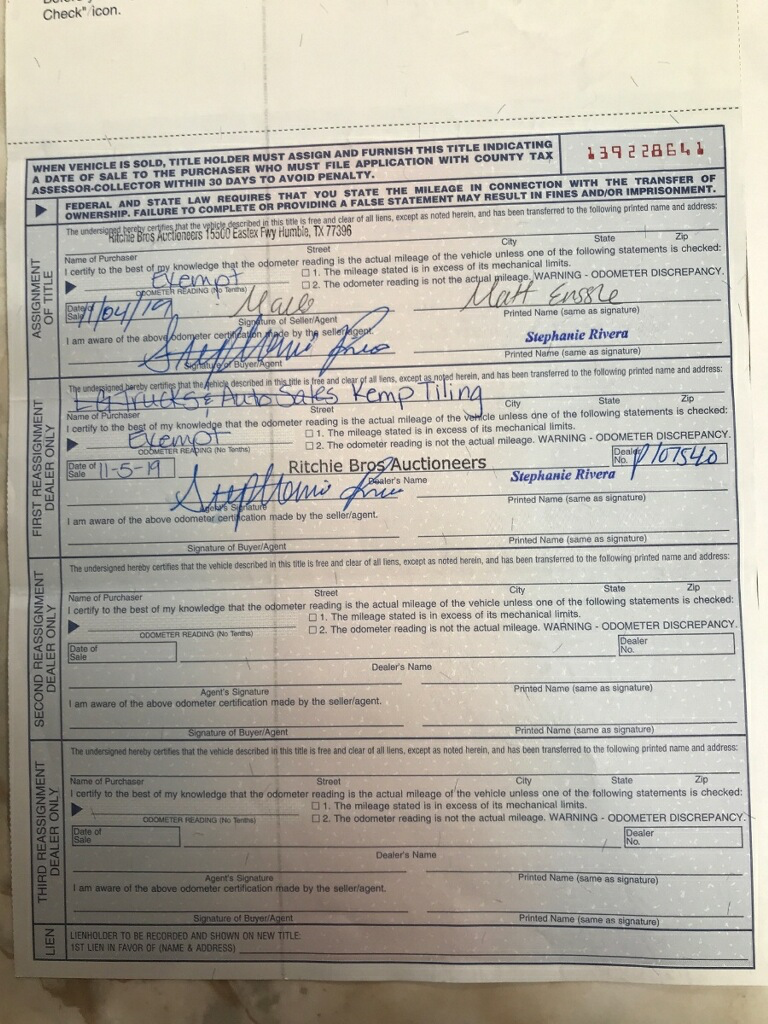 Check" icon.
WHEN VEHICLE IS SOLD, TITLE HOLDER MUST ASSIGN AND FURNISH THIS TITLE INDICATING
A DATE OF SALE TO THE PURCHASER WHO MUST FILE APPLICATION WITH COUNTY TAX
ASSESSOR-COLLECTOR WITHIN 30 DAYS TO AVOID PENALTY.
139228641
FEDERAL AND STATE LAW REQUIRES THAT YOU STATE THE MILEAGE IN CONNECTION WITH THE TRANSFER OF
OWNERSHIP. FAILURE TO COMPLETE OR PROVIDING A FALSE STATEMENT MAY RESULT IN FINES AND/OR IMPRISONMENT.
ASSIGNMENT OF TITLE
The undersigned hereby certifies that the vehicle described in this title is free and clear of all liens, except as noted herein, and has been transferred to the following printed name and address:
Ritchie Bros Auctioneers 15500 Eastex Fwy Humble, TX 77396
Name of Purchaser Street City State Zip
I certify to the best of my knowledge that the odometer reading is the actual mileage of the vehicle unless one of the following statements is checked:
Exempt
☐ 1. The mileage stated is in excess of its mechanical limits.
ODOMETER READING (No Tenths)
☐ 2. The odometer reading is not the actual mileage. WARNING - ODOMETER DISCREPANCY.
Date of Sale 11/04/19
Matt Enssle
Signature of Seller/Agent Printed Name (same as signature)
I am aware of the above odometer certification made by the seller/agent.
Stephanie Rivera
Signature of Buyer/Agent Printed Name (same as signature)
FIRST REASSIGNMENT DEALER ONLY
The undersigned hereby certifies that the vehicle described in this title is free and clear of all liens, except as noted herein, and has been transferred to the following printed name and address:
Trucks & Auto Sales Kemp Tiling
Name of Purchaser Street City State Zip
I certify to the best of my knowledge that the odometer reading is the actual mileage of the vehicle unless one of the following statements is checked:
Exempt
☐ 1. The mileage stated is in excess of its mechanical limits.
ODOMETER READING (No Tenths)
☐ 2. The odometer reading is not the actual mileage. WARNING - ODOMETER DISCREPANCY.
Date of Sale 11-5-19
Ritchie Bros Auctioneers
Dealer No. P107540
Dealer's Name
Stephanie Rivera
Agent's Signature Printed Name (same as signature)
I am aware of the above odometer certification made by the seller/agent.
Signature of Buyer/Agent Printed Name (same as signature)
SECOND REASSIGNMENT DEALER ONLY
The undersigned hereby certifies that the vehicle described in this title is free and clear of all liens, except as noted herein, and has been transferred to the following printed name and address:
Name of Purchaser Street City State Zip
I certify to the best of my knowledge that the odometer reading is the actual mileage of the vehicle unless one of the following statements is checked:
☐ 1. The mileage stated is in excess of its mechanical limits.
ODOMETER READING (No Tenths)
☐ 2. The odometer reading is not the actual mileage. WARNING - ODOMETER DISCREPANCY.
Date of Sale
Dealer No.
Dealer's Name
Agent's Signature Printed Name (same as signature)
I am aware of the above odometer certification made by the seller/agent.
Signature of Buyer/Agent Printed Name (same as signature)
THIRD REASSIGNMENT DEALER ONLY
The undersigned hereby certifies that the vehicle described in this title is free and clear of all liens, except as noted herein, and has been transferred to the following printed name and address:
Name of Purchaser Street City State Zip
I certify to the best of my knowledge that the odometer reading is the actual mileage of the vehicle unless one of the following statements is checked:
☐ 1. The mileage stated is in excess of its mechanical limits.
ODOMETER READING (No Tenths)
☐ 2. The odometer reading is not the actual mileage. WARNING - ODOMETER DISCREPANCY.
Date of Sale
Dealer No.
Dealer's Name
Agent's Signature Printed Name (same as signature)
I am aware of the above odometer certification made by the seller/agent.
Signature of Buyer/Agent Printed Name (same as signature)
LIEN
LIENHOLDER TO BE RECORDED AND SHOWN ON NEW TITLE:
1ST LIEN IN FAVOR OF (NAME & ADDRESS)